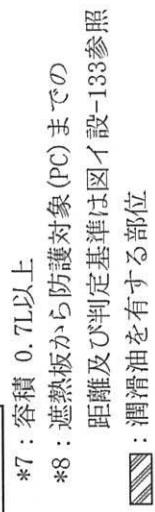 *7：容積 0.7L以上
*8：遮熱板から防護対象(PC)までの
距離及び判定基準は図イ設-133参照
：潤滑油を有する部位